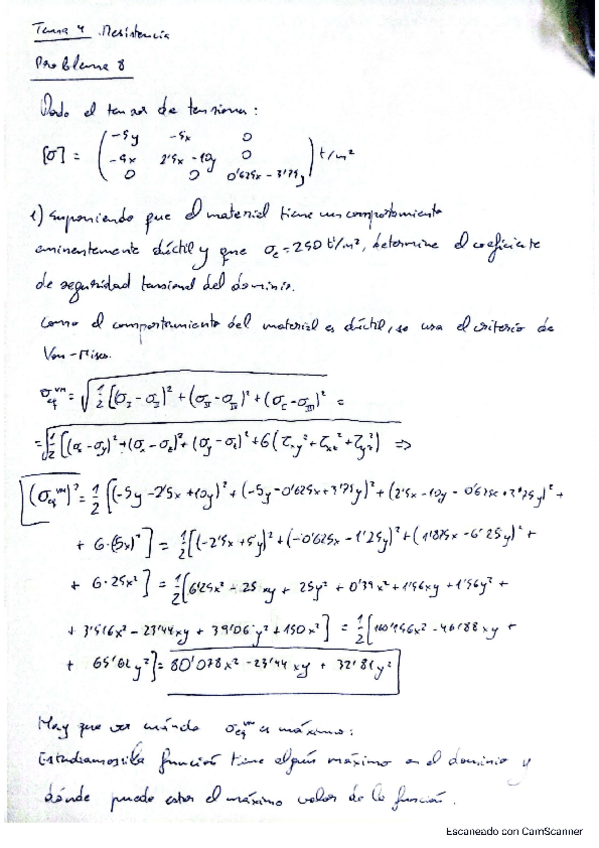 Tema 4. Resistencia
Problema 8
Dado el tensor de tensiones:
[σ] = ( -5y -5x 0
-5x 2'5x -10y 0
0 0 0'625x - 3'75y ) t/m²
1) Suponiendo que el material tiene un comportamiento
eminentemente dúctil y que σe = 250 t/m², determine el coeficiente
de seguridad tensional del dominio.
Como el comportamiento del material es dúctil, se usa el criterio de
Von-Mises.
σeq^VM = √(1/2 [(σI - σII)² + (σII - σIII)² + (σI - σIII)²] =
= √(1/2 [(σx - σy)² + (σx - σz)² + (σy - σz)² + 6(τxy² + τxz² + τyz²) ⇒
(σeq^VM)² = 1/2 [(-5y - 2'5x + 10y)² + (-5y - 0'625x + 3'75y)² + (2'5x - 10y - 0'625x + 3'75y)² +
+ 6·(5x)²] = 1/2 [(-2'5x + 5y)² + (-0'625x - 1'25y)² + (1'875x - 6'25y)² +
+ 6·25x²] = 1/2 [6'25x² - 25xy + 25y² + 0'39x² + 1'56xy + 1'56y² +
+ 3'516x² - 23'44xy + 39'06y² + 150x²] = 1/2 [160'156x² - 46'88xy +
+ 65'62y²] = 80'078x² - 23'44xy + 32'81y²
Hay que ver cuándo σeq^VM es máximo:
Estudiamos si la función tiene algún máximo en el dominio y
dónde puede estar el máximo valor de la función.
Escaneado con CamScanner